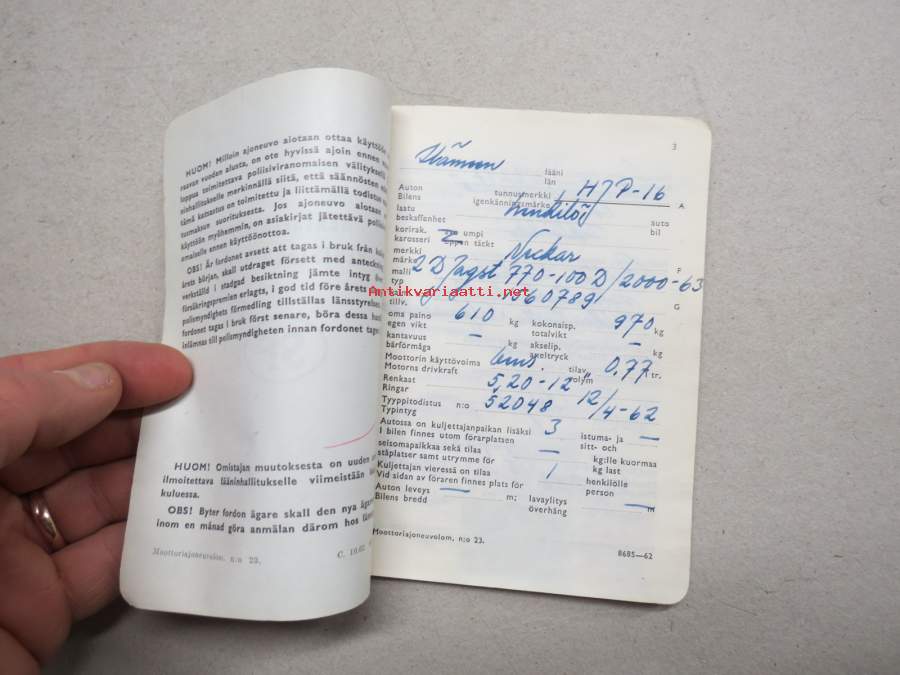 HUOM! Milloin ajoneuvo aiotaan ottaa käyttöön
raavan vuoden alusta, on ote hyvissä ajoin ennen
loppua toimitettava poliisiviranomaisen välityksellä
ninhallitukselle merkinnällä siitä, että säännösten
tämä katsastus on toimitettu ja liittämällä todistus
tusmaksun suorituksesta. Jos ajoneuvo aiotaan
käyttöön myöhemmin, on asiakirjat jätettävä
omaiselle ennen käyttöönottoa.
OBS! Är fordonet avsett att tagas i bruk från
årets början, skall utdraget försett med
verkställd i stadgad besiktning jämte intyg
försäkringspremien erlagts, i god tid före årets
polismyndighets förmedling tillställas länsstyrelsen.
fordonet tagas i bruk först senare, böra dessa
inlämnas till polismyndigheten innan fordonet tages
HUOM! Omistajan muutoksesta on uuden
ilmoitettava lääninhallitukselle viimeistään
kuluessa.
OBS! Byter fordon ägare skall den nya ägare
inom en månad göra anmälan därom hos
Moottoriajoneuvolom. n:o 23. C. 10.62
3
Hämeen lääni
län
Auton tunnusmerkki HJP-16 A
Bilens igenkänningsmärke
laatu henkilö auto
beskaffenhet bil
korirak. umpi
karosseri täckt
merkki Neckar
märke
malli 2D/Jagst 770-100D/2000-63 P
typ
tillv. 1560789 G
oma paino 610 kg kokonaisp. 970 kg
egen vikt totalvikt
kantavuus — kg akselip. — kg
bärförmåga axeltryck
Moottorin käyttövoima bens. tilav. 0,77 ltr.
Motorns drivkraft volym
Renkaat 5,20-12"
Ringar
Tyyppitodistus n:o 52048 12/4-62
Typintyg
Autossa on kuljettajanpaikan lisäksi 3 istuma- ja —
I bilen finnes utom förarplatsen sitt- och
seisomapaikkaa sekä tilaa — kg:lle kuormaa
ståplatser samt utrymme för kg last
Kuljettajan vieressä on tilaa 1 henkilölle
Vid sidan av föraren finnes plats för person
Auton leveys — m; lavaylitys — m
Bilens bredd överhäng
Moottoriajoneuvolom. n:o 23.
8685—62
Antikvariaatti.net